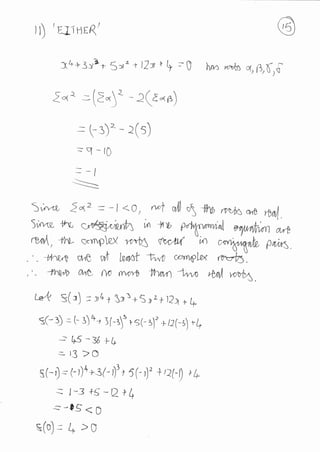 11) 'EITHER' 15
x⁴ + 3x³ + 5x² + 12x + 4 = 0 has roots α, β, γ, δ
Σα² = (Σα)² - 2(Σαβ)
= (-3)² - 2(5)
= 9 - 10
= -1
Since Σα² = -1 < 0, not all of the roots are real.
Since the coefficients in the polynomial equation are
real, the complex roots occur in conjugate pairs.
∴ there are at least two complex roots.
∴ there are no more than two real roots.
Let f(x) = x⁴ + 3x³ + 5x² + 12x + 4
f(-3) = (-3)⁴ + 3(-3)³ + 5(-3)² + 12(-3) + 4
= 45 - 36 + 4
= 13 > 0
f(-1) = (-1)⁴ + 3(-1)³ + 5(-1)² + 12(-1) + 4
= 1 - 3 + 5 - 12 + 4
= -5 < 0
f(0) = 4 > 0